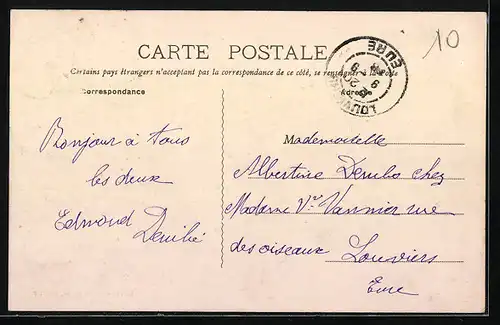 10
CARTE POSTALE
Certains pays étrangers n'acceptant pas la correspondance de ce côté, se renseigner à la Poste
Correspondance
Adresse
LOUVIERS
EURE
Bonjour à tous
les deux
Edmond
Mademoiselle
Albertine chez
Madame Vve Vannier rue
des oiseaux Louviers
Eure